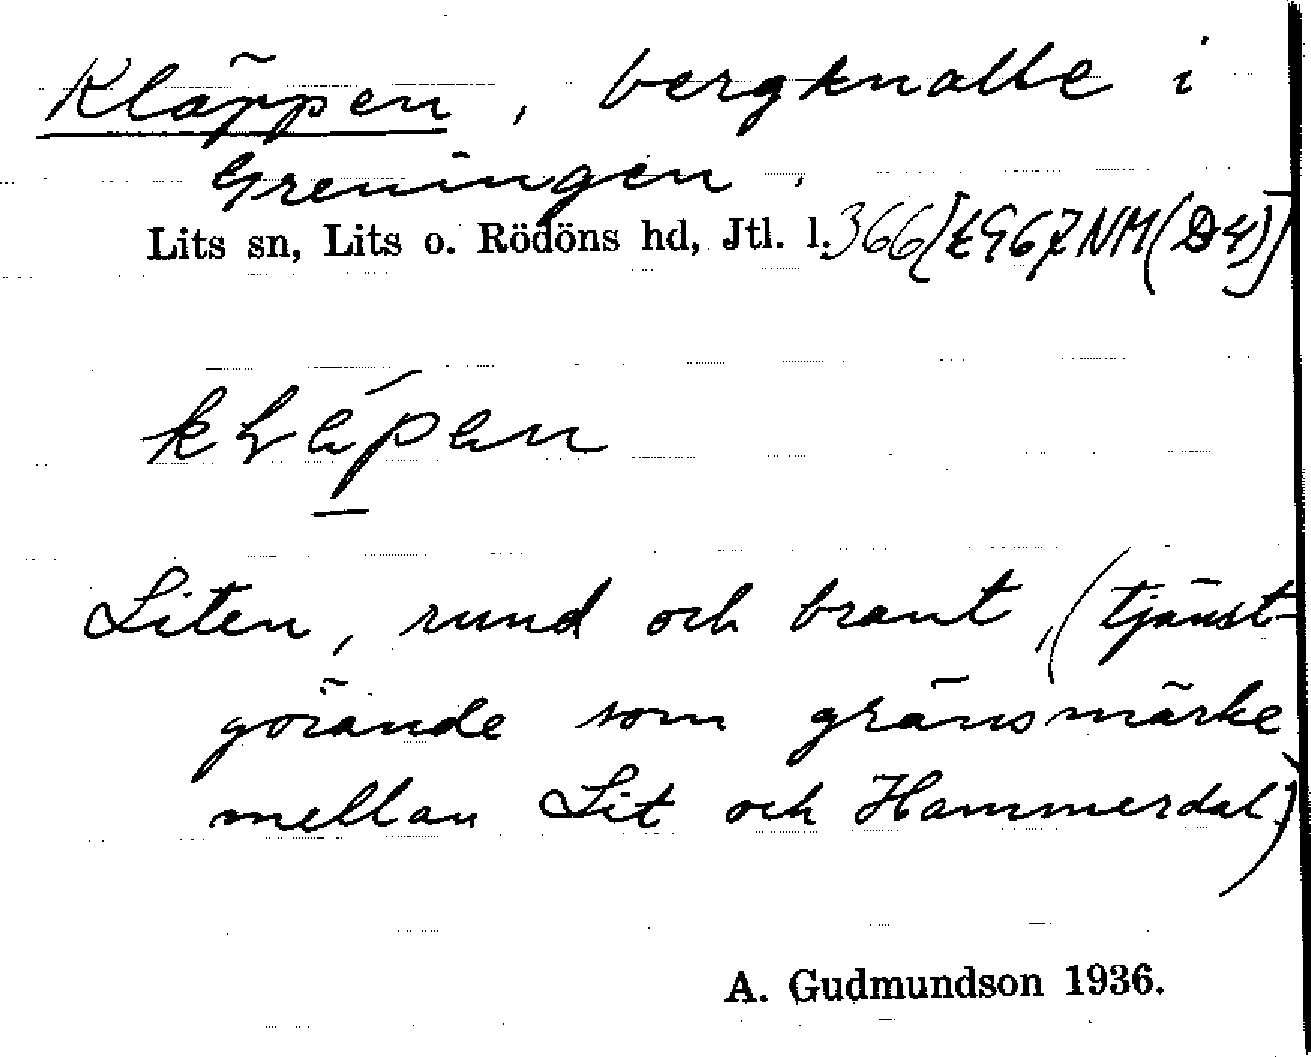 Kläppen, bergknalle i
Greningen.
Lits sn, Lits o. Rödöns hd, Jtl. l. 366
Liten, rund och brant, (tjänst-
görande som gränsmärke
mellan Lit och Hammerdal.)
A. Gudmundson 1936.